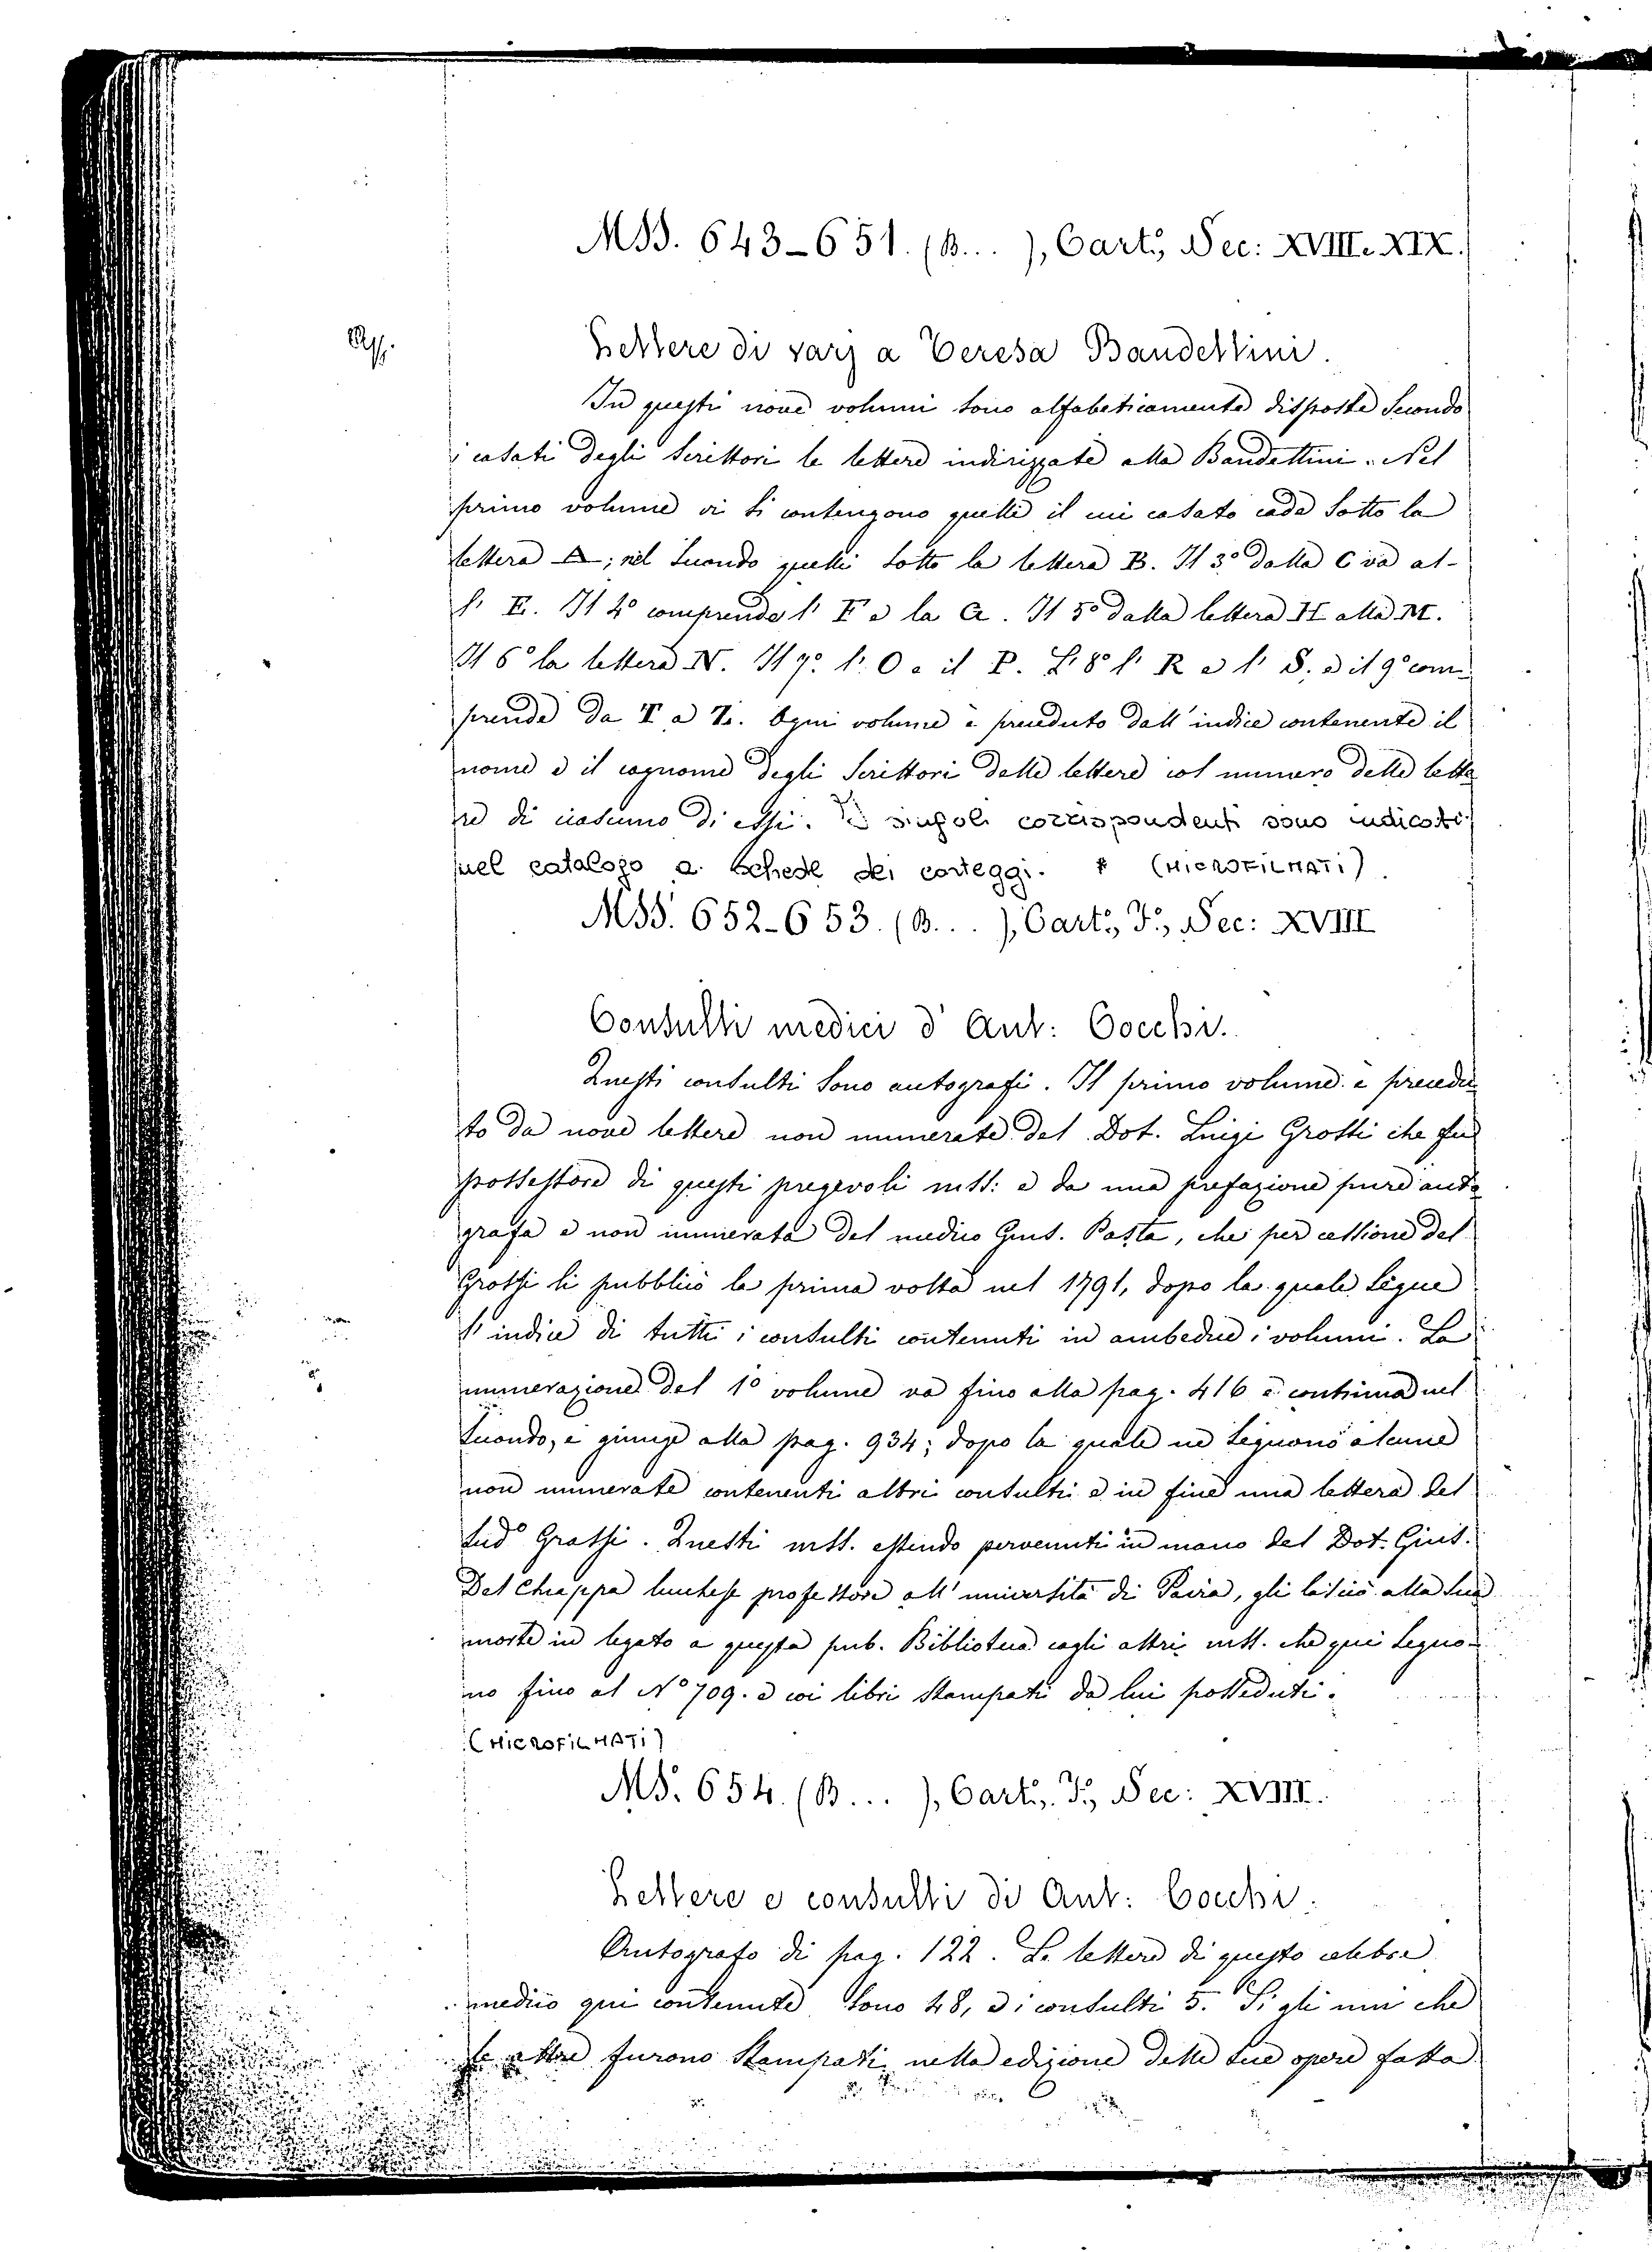 MSS. 643-651. (B... ), Cart:, Sec: XVIII. XIX.
Lettere di varj a Teresa Bandettini.
In questi nove volumi sono alfabeticamente disposte secondo
i casati degli scrittori le lettere indirizzate alla Bandettini. Nel
primo volume vi si contengono quelle il cui casato cade sotto la
lettera A; nel secondo quelli sotto la lettera B. Il 3º dalla C va al-
l' E. Il 4º comprende l' F e la G. Il 5º dalla lettera H alla M.
Il 6º la lettera N. Il 7º l' O e il P. L' 8º l' R e l' S. e il 9º com-
prende da T a Z. Ogni volume è preceduto dall' indice contenente il
nome e il cognome degli scrittori delle lettere col numero delle lette
re di ciascuno di essi. I singoli corrispondenti sono indicati
nel catalogo a schede dei carteggi. (MICROFILMATI).
MSS. 652-653. (B... ), Cart:, Fº, Sec: XVIII
Consulti medici d' Ant: Cocchi.
Questi consulti sono autografi. Il primo volume è precedu
to da nove lettere non numerate del Dot. Luigi Grossi che fu
possessore di questi pregevoli mss: e da una prefazione pure auto
grafa e non numerata del medico Gius. Pasta, che per cessione del
Grossi li pubblicò la prima volta nel 1791, dopo la quale segue
l' indice di tutti i consulti contenuti in ambedue i volumi. La
numerazione del 1º volume va fino alla pag. 416 e continua nel
secondo, e giunge alla pag. 934; dopo la quale ne seguono alcune
non numerate contenenti altri consulti e in fine una lettera del
sudº Grossi. Questi mss. essendo pervenuti in mano del Dot. Gius.
Del Chiappa lucchese professore all' università di Pavia, gli lasciò alla sua
morte in legato a questa pub. Biblioteca cogli altri mss. che qui seguo-
no fino al Nº 709. e coi libri stampati da lui posseduti.
(MICROFILMATI)
MS. 654. (B... ), Cart:, Fº, Sec: XVIII.
Lettere e consulti di Ant: Cocchi.
Autografo di pag. 122. Le lettere di questo celebre
medico qui contenute sono 48, e i consulti 5. Sì gli uni che
le altre furono stampati nella edizione delle sue opere fatta